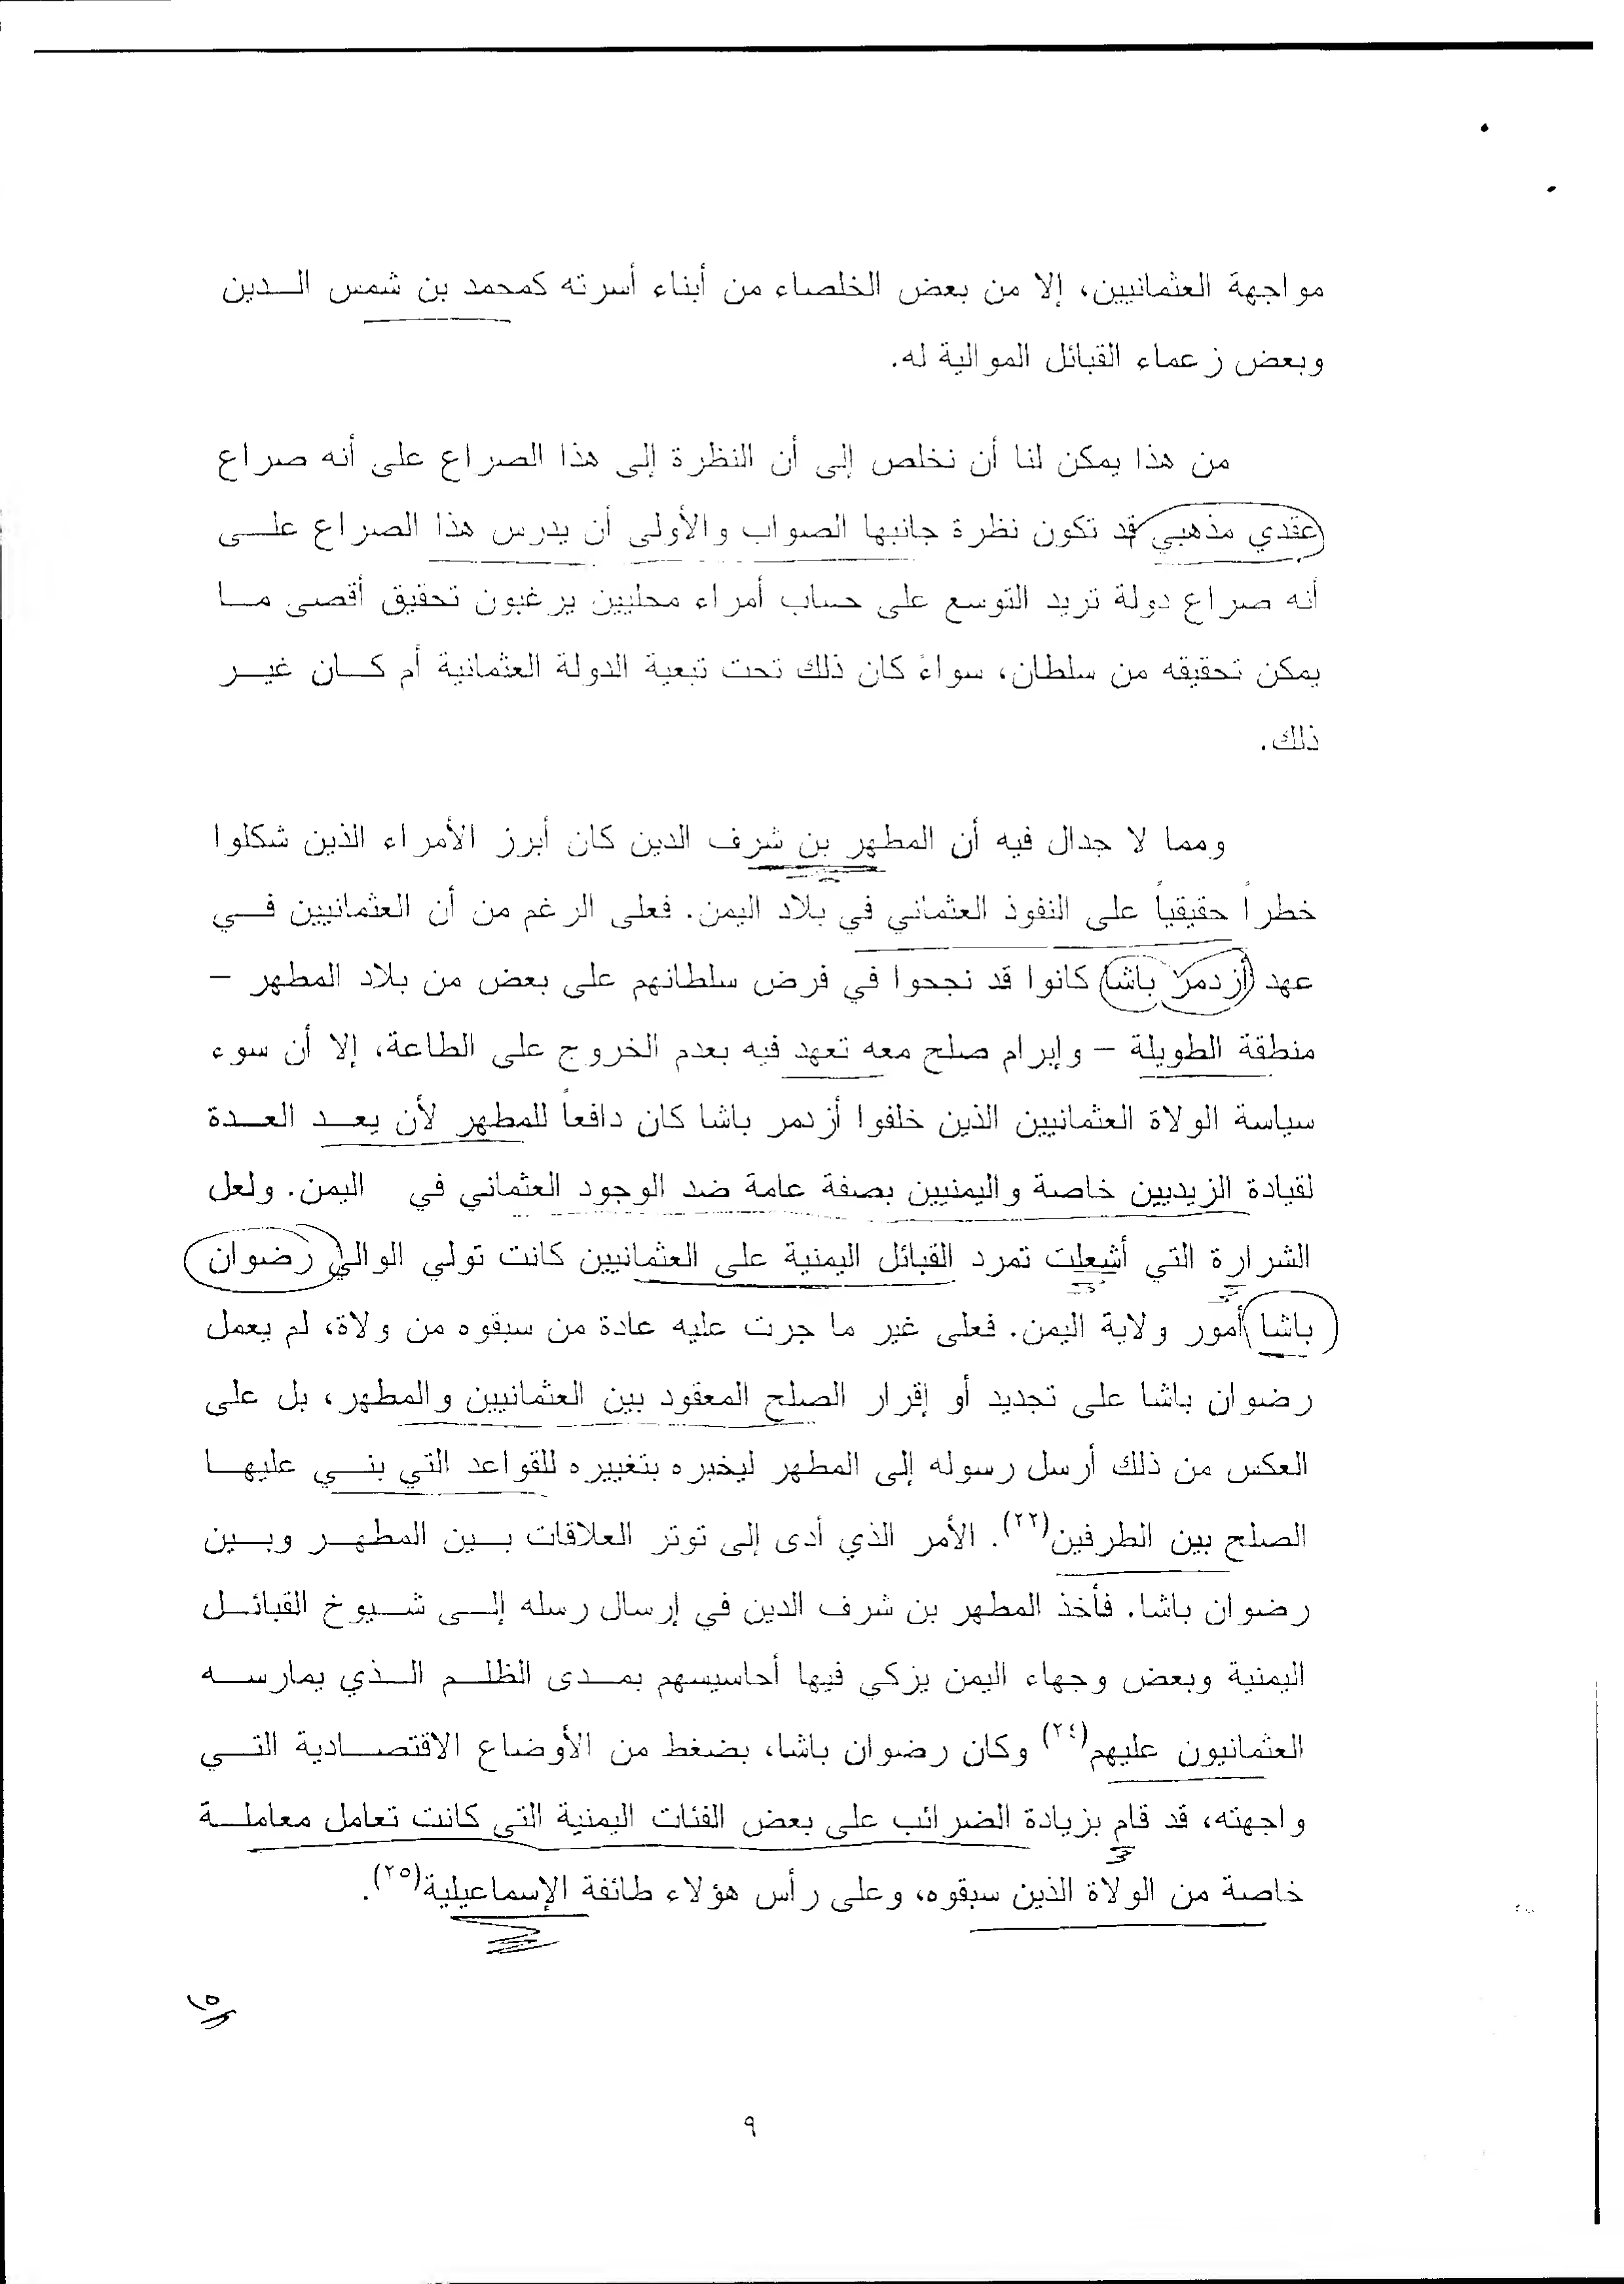 مواجهة العثمانيين، إلا من بعض الخلصاء من أبناء أسرته كمحمد بن شمس الدين
وبعض زعماء القبائل الموالية له.
من هذا يمكن لنا أن نخلص إلى أن النظرة إلى هذا الصراع على أنه صراع
عقدي مذهبي قد تكون نظرة جانبها الصواب والأولى أن يدرس هذا الصراع على
أنه صراع دولة تريد التوسع على حساب أمراء محليين يرغبون تحقيق أقصى ما
يمكن تحقيقه من سلطان، سواءً كان ذلك تحت تبعية الدولة العثمانية أم كان غير
ذلك.
ومما لا جدال فيه أن المطهر بن شرف الدين كان أبرز الأمراء الذين شكلوا
خطراً حقيقياً على النفوذ العثماني في بلاد اليمن. فعلى الرغم من أن العثمانيين في
عهد أزدمر باشا كانوا قد نجحوا في فرض سلطانهم على بعض من بلاد المطهر –
منطقة الطويلة – وإبرام صلح معه تعهد فيه بعدم الخروج على الطاعة، إلا أن سوء
سياسة الولاة العثمانيين الذين خلفوا أزدمر باشا كان دافعاً للمطهر لأن يعد العدة
لقيادة الزيديين خاصة واليمنيين بصفة عامة ضد الوجود العثماني في اليمن. ولعل
الشرارة التي أشعلت تمرد القبائل اليمنية على العثمانيين كانت تولي الوالي رضوان
باشا أمور ولاية اليمن. فعلى غير ما جرت عليه عادة من سبقوه من ولاة، لم يعمل
رضوان باشا على تجديد أو إقرار الصلح المعقود بين العثمانيين والمطهر، بل على
العكس من ذلك أرسل رسوله إلى المطهر ليخبره بتغييره للقواعد التي بني عليها
الصلح بين الطرفين(٢٢). الأمر الذي أدى إلى توتر العلاقات بين المطهر وبين
رضوان باشا. فأخذ المطهر بن شرف الدين في إرسال رسله إلى شيوخ القبائل
اليمنية وبعض وجهاء اليمن يزكي فيها أحاسيسهم بمدى الظلم الذي يمارسه
العثمانيون عليهم(٢٤) وكان رضوان باشا، بضغط من الأوضاع الاقتصادية التي
واجهته، قد قام بزيادة الضرائب على بعض الفئات اليمنية التي كانت تعامل معاملة
خاصة من الولاة الذين سبقوه، وعلى رأس هؤلاء طائفة الإسماعيلية(٢٥).
٩